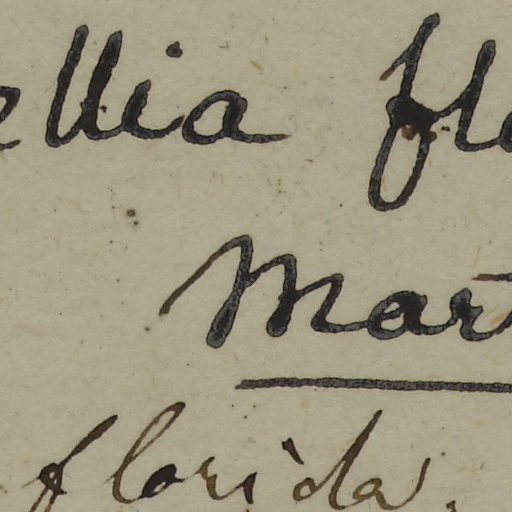 ellia flo
Mart
florida.